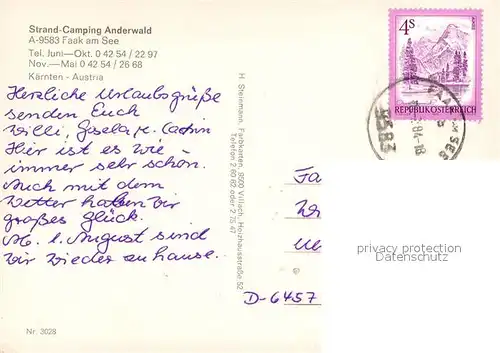 Strand-Camping Anderwald
A-9583 Faak am See
Tel. Juni—Okt. 0 42 54 / 22 97
Nov.—Mai 0 42 54 / 26 68
Kärnten - Austria
Herzliche Urlaubsgrüße
senden Euch
Willi, Gisela u.
Hier ist es wie
immer sehr schön.
Auch mit dem
Wetter haben wir
großes Glück.
August sind
wir wieder zu hause.
Nr. 3028
H. Steinmann, Farbkarten, 9500 Villach, Holzhausstraße 52
Telefon 2 60 82 oder 2 75 47
4S
REPUBLIK ÖSTERREICH
9583
84-18
D-6457
privacy protection
Datenschutz